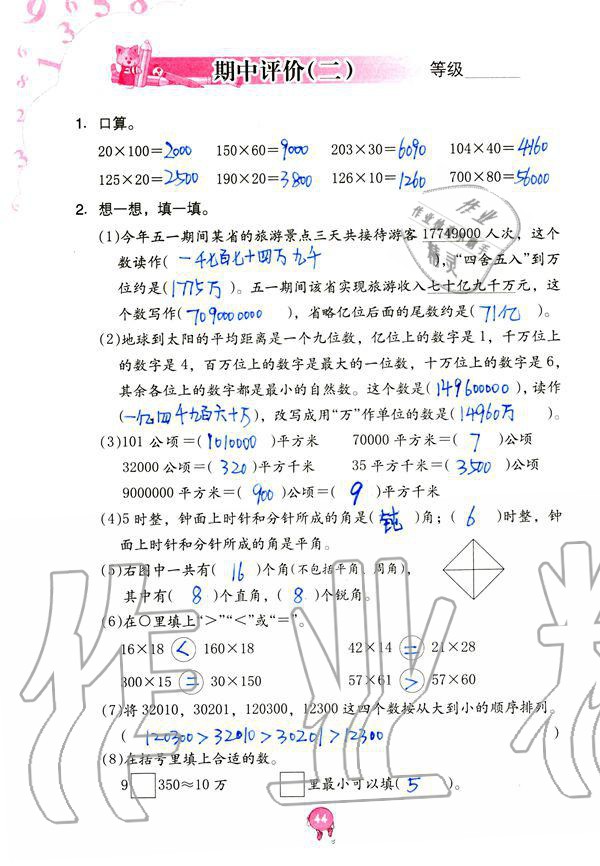 期中评价(二) 等级
1. 口算。
20×100=2000 150×60=9000 203×30=6090 104×40=4160
125×20=2500 190×20=3800 126×10=1260 700×80=56000
2. 想一想，填一填。
(1)今年五一期间某省的旅游景点三天共接待游客17749000人次，这个
数读作(一千七百七十四万九千)，“四舍五入”到万
位约是(1775万)。五一期间该省实现旅游收入七十亿九千万元，这
个数写作(7090000000)，省略亿位后面的尾数约是(71亿)。
(2)地球到太阳的平均距离是一个九位数，亿位上的数字是1，千万位上
的数字是4，百万位上的数字是最大的一位数，十万位上的数字是6，
其余各位上的数字都是最小的自然数。这个数是(149600000)，读作
(一亿四千九百六十万)，改写成用“万”作单位的数是(14960万)。
(3)101公顷=(1010000)平方米 70000平方米=(7)公顷
32000公顷=(320)平方千米 35平方千米=(3500)公顷
9000000平方米=(900)公顷=(9)平方千米
(4)5时整，钟面上时针和分针所成的角是(钝)角；(6)时整，钟
面上时针和分针所成的角是平角。
(5)右图中一共有(16)个角(不包括平角、周角)，
其中有(8)个直角，(8)个锐角。
(6)在○里填上“>”“<”或“=”。
16×18<160×18 42×14=21×28
300×15=30×150 57×61>57×60
(7)将32010，30201，120300，12300这四个数按从大到小的顺序排列。
(120300>32010>30201>12300)
(8)在括号里填上合适的数。
9□350≈10万 □里最小可以填(5)。
44